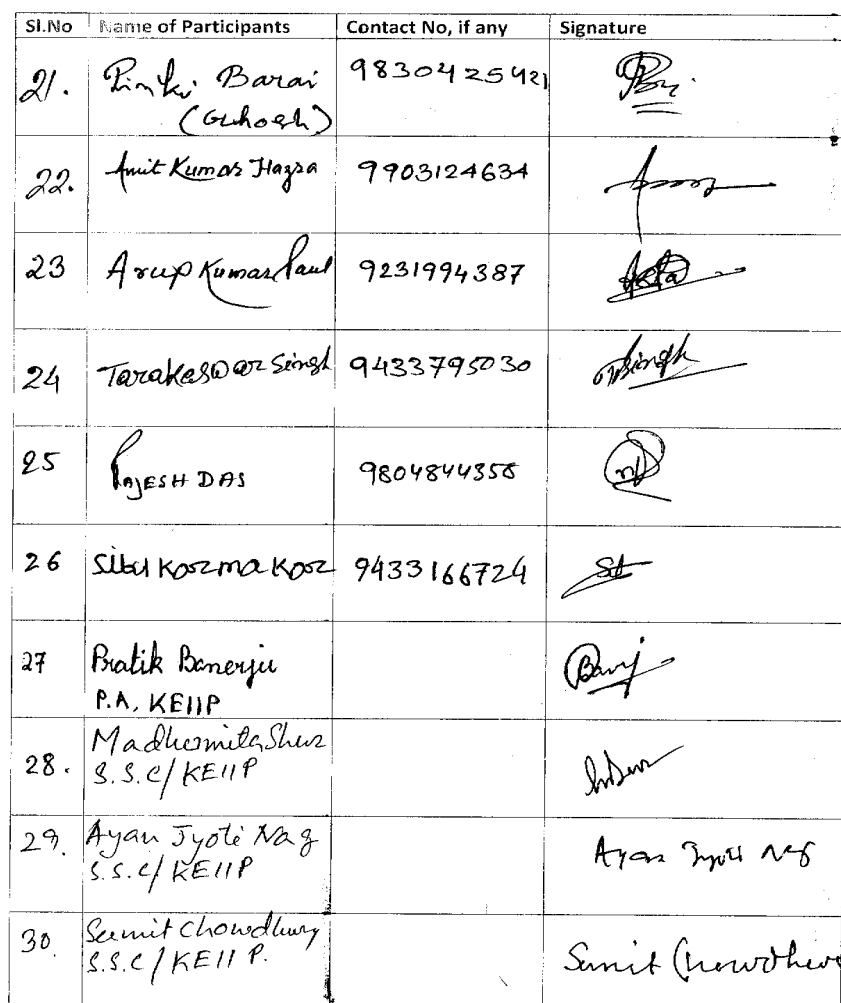 Sl.No Name of Participants Contact No, if any Signature
21. Pinki Barai 9830425421
(Ghosh)
22. Amit Kumar Hazra 9903124634
23 Arup Kumar Paul 9231994387
24 Tarakeswar Singh 9433795030 Singh
25 RAJESH DAS 9804844358
26 Sibu Karmakar 9433166724
27 Pratik Banerjee
P.A, KEIIP
28. Madhumita Shur
S.S.C/KEIIP
29. Ayan Jyoti Nag Ayan Jyoti Nag
S.S.C/KEIIP
30 Sumit Chowdhury
S.S.C/KEIIP. Sumit Chowdhury